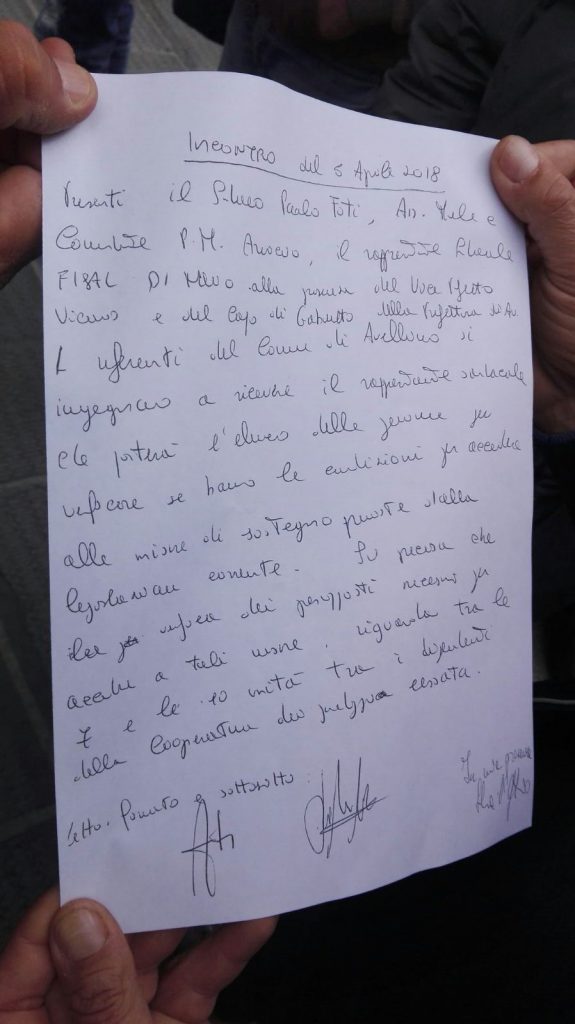 INCONTRO del 5 Aprile 2018
Presenti il Sindaco Paolo Foti, Ass. Mele e
Comandante P.M. Arvonio, il rappresentante Sindacale
FISAL DI MEVO alla presenza del Vice Prefetto
Vicario e del Capo di Gabinetto della Prefettura di Av.
I referenti del Comune di Avellino si
impegnano a ricevere il rappresentante sindacale
che porterà l'elenco delle persone per
verificare se hanno le condizioni per accedere
alle misure di sostegno previste dalla
legislazione corrente. Si precisa che
la verifica dei presupposti necessari per
accedere a tali misure, riguarda tra le
7 e le 10 unità tra i dipendenti
della Cooperativa dei parcheggi cessata.
Letto. Firmato e sottoscritto: